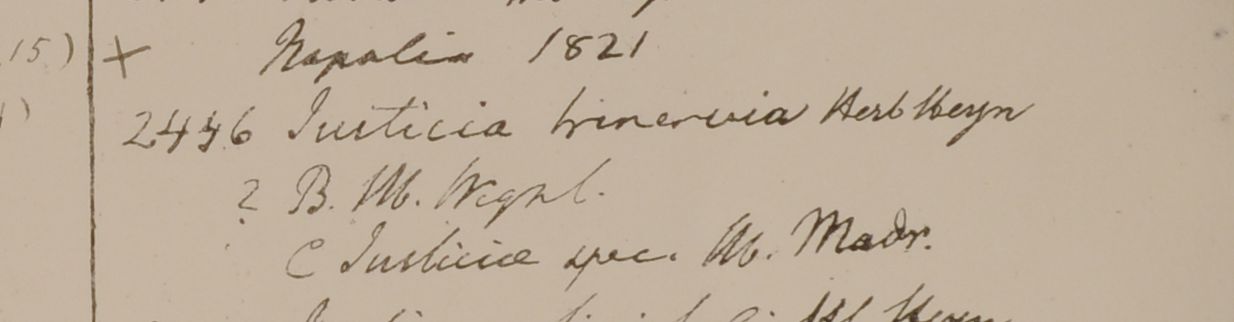 15) + Napalia 1821
2446 Justicia trinervia Herb Heyn
? B. Hb. Wight.
C Justicia spec. Hb. Madr.